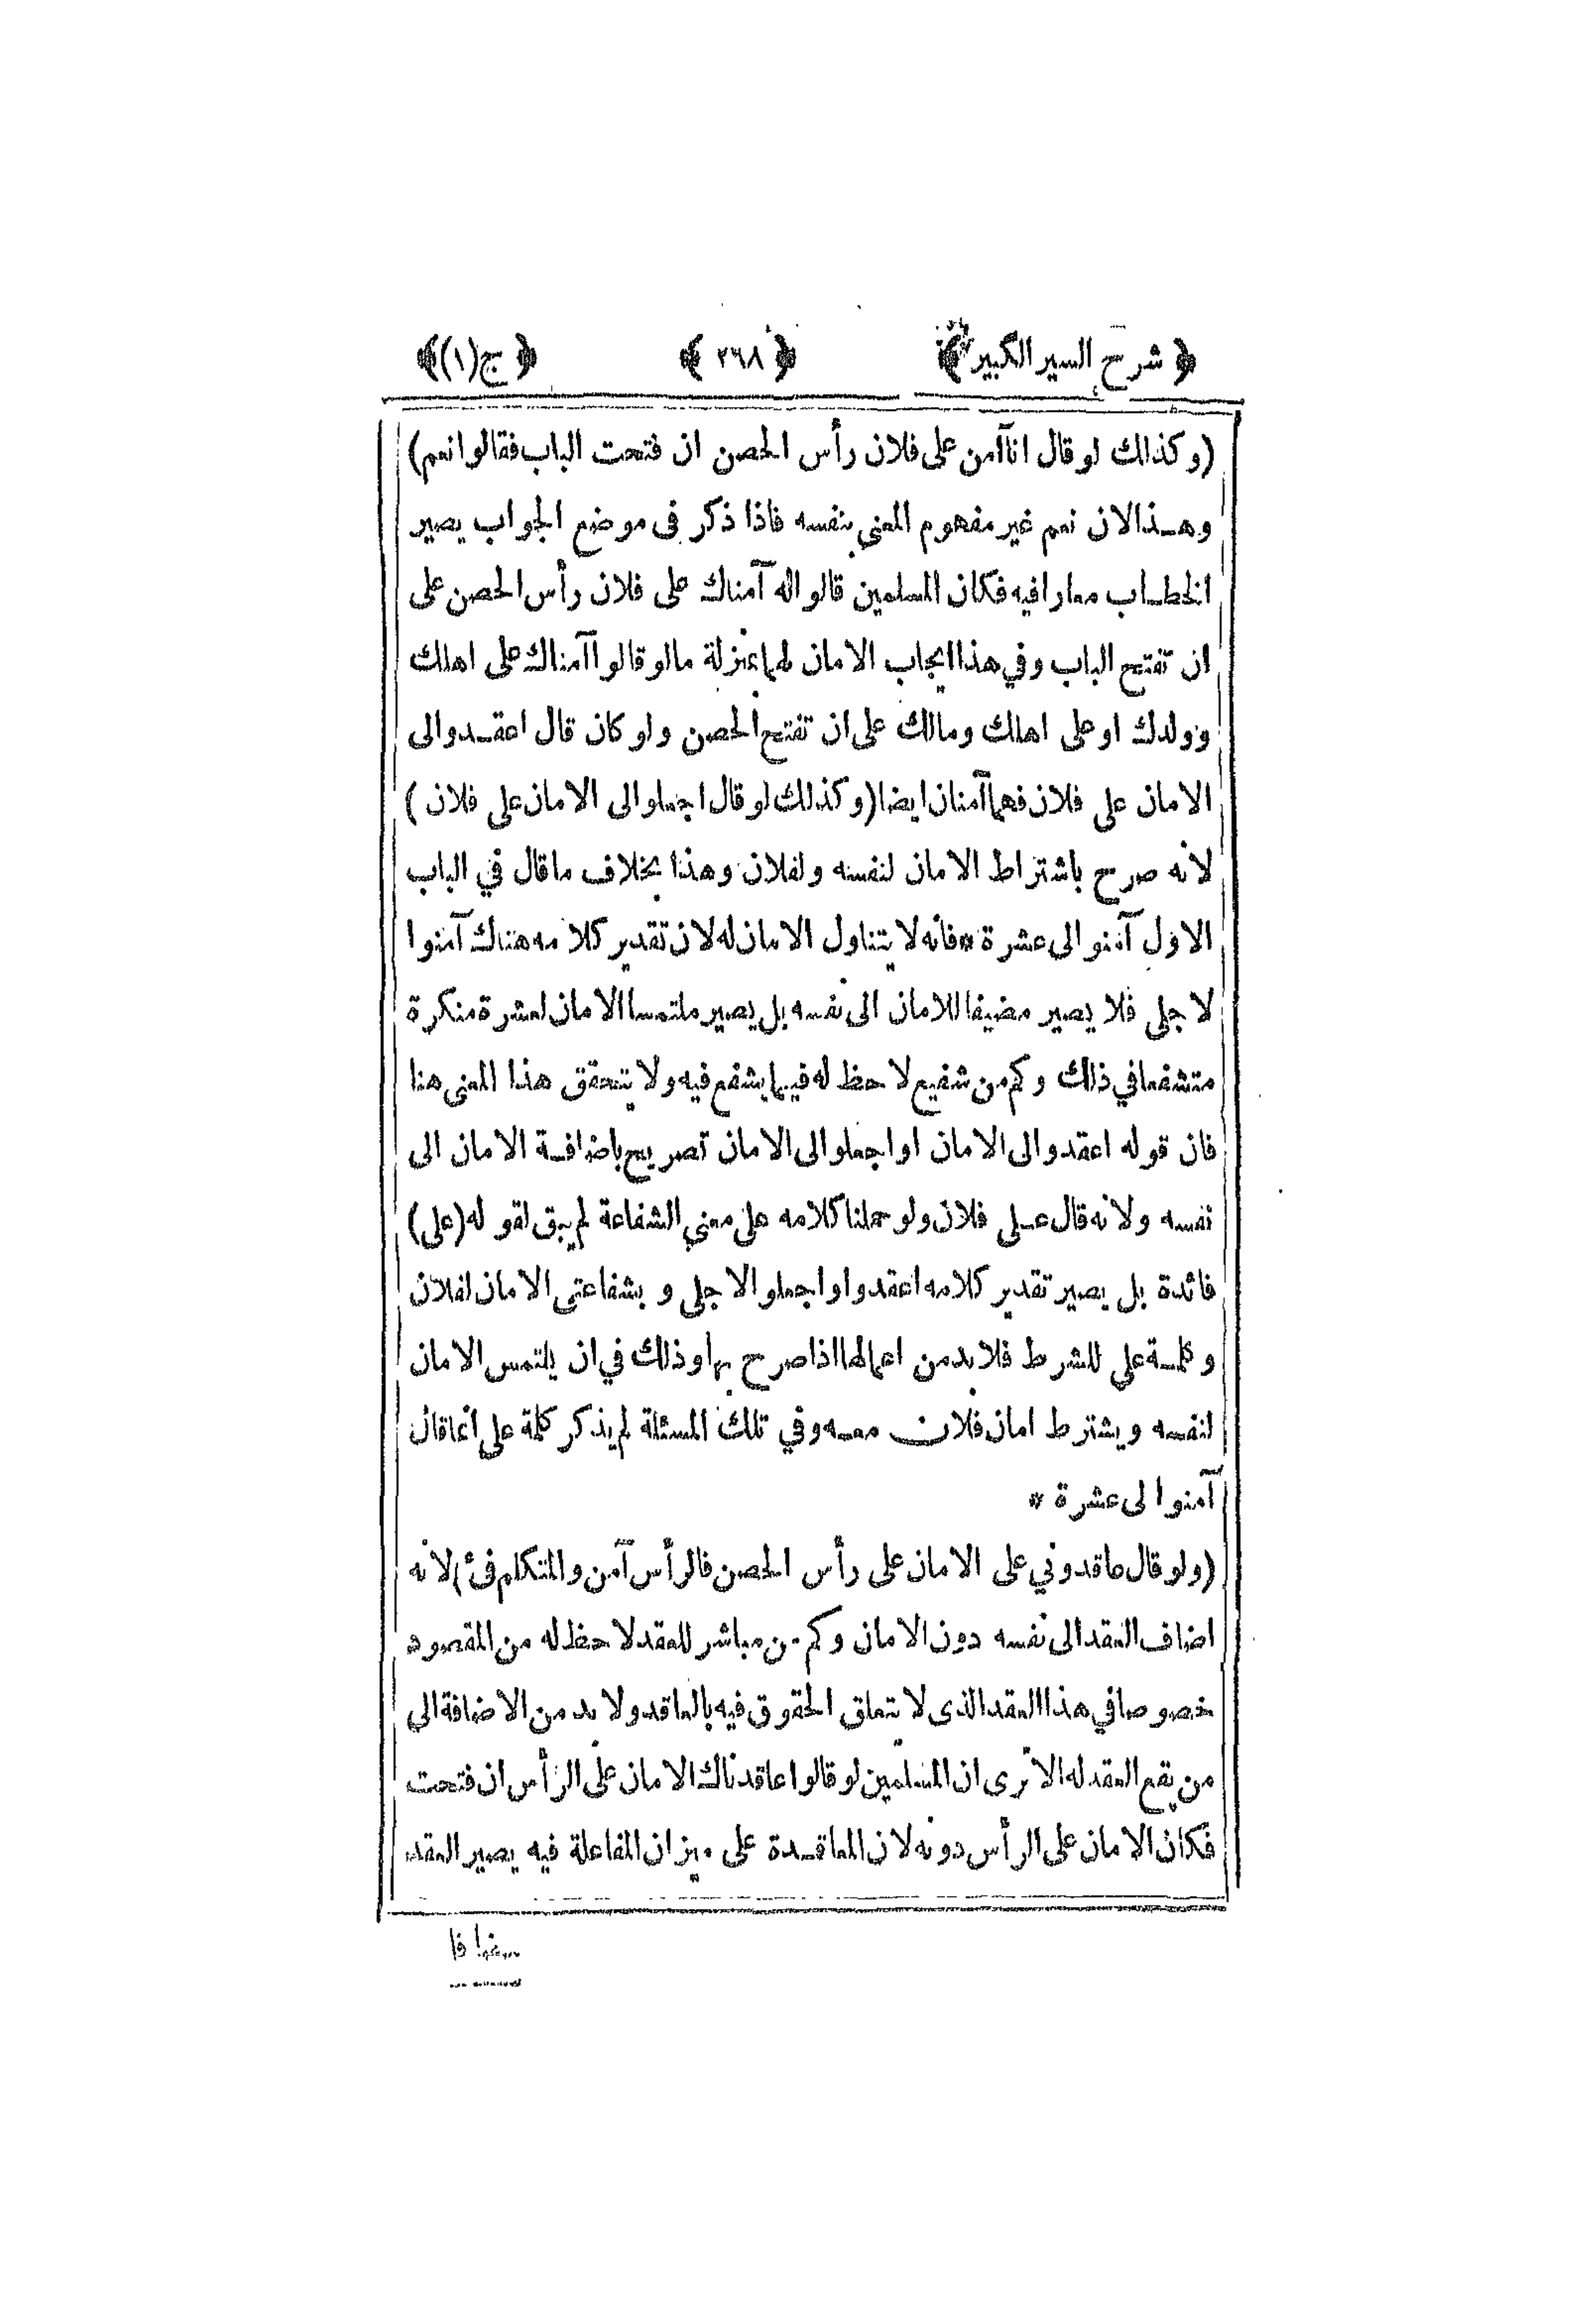 ﴿ شرح السير الكبير ﴾ ﴿ ٢٦٨ ﴾ ﴿ ج (١) ﴾
(وكذلك لو قال انا آمن على فلان رأس الحصن ان فتحت الباب فقالوا نعم)
وهـذا لان نعم غير مفهوم المعنى بنفسه فاذا ذكر فى موضع الجواب يصير
الخطـاب معارا فيه فكان المسلمين قالوا له آمناك على فلان رأس الحصن على
ان تفتح الباب وفي هذا ايجاب الامان لهما بمنزلة مالو قالوا آمناك على اهلك
وولدك او على اهلك ومالك على ان تفتح الحصن ولو كان قال اعقـدوا لى
الامان على فلان فهما آمنان ايضا (وكذلك لو قال اجعلوا لى الامان على فلان)
لانه صرح باشتراط الامان لنفسه ولفلان وهذا بخلاف ما قال في الباب
الاول آمنوا لى عشرة * فانه لا يتناول الامان له لان تقدير كلامه هناك آمنوا
لاجلى فلا يصير مضيفا للامان الى نفسه بل يصير ملتمسا الامان لعشرة منكرة
متشفعا في ذلك وكم من شفيع لا حظ له فيما يشفع فيه ولا يتحقق هذا المعنى هنا
فان قوله اعقدوا لى الامان او اجعلوا لى الامان تصريح باضافـة الامان الى
نفسه ولانه قال عـلى فلان ولو حملنا كلامه على معنى الشفاعة لم يبق لقوله (على)
فائدة بل يصير تقدير كلامه اعقدوا او اجعلوا لاجلى و بشفاعتى الامان لفلان
وكلمـة على للشرط فلا بد من اعمالها اذا صرح بها وذلك في ان يلتمس الامان
لنفسه ويشترط امان فلان معـه وفي تلك المسئلة لم يذكر كلمة على انما قال
آمنوا لى عشرة *
(ولو قال عاقدوني على الامان على رأس الحصن فالرأس آمن والمتكلم فىء) لانه
اضاف العقد الى نفسه دون الامان وكم من مباشر للعقد لا حظ له من المقصود
خصوصا في هذا العقد الذى لا تتعلق الحقوق فيه بالعاقد ولا بد من الاضافة الى
من يقع العقد له الا ترى ان المسلمين لو قالوا عاقدناك الامان على الرأس ان فتحت
فكان الامان على الرأس دونه لان المعاقـدة على ميزان المفاعلة فيه يصير العقد